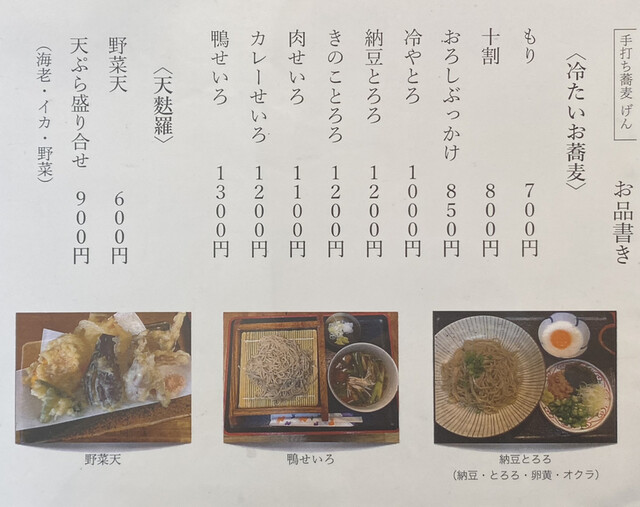 手打ち蕎麦 げん
お品書き
〈冷たいお蕎麦〉
もり 700円
十割 800円
おろしぶっかけ 850円
冷やとろ 1000円
納豆とろろ 1200円
きのことろろ 1200円
肉せいろ 1100円
カレーせいろ 1200円
鴨せいろ 1300円
〈天麩羅〉
野菜天 600円
天ぷら盛り合せ 900円
(海老・イカ・野菜)
野菜天
鴨せいろ
納豆とろろ
(納豆・とろろ・卵黄・オクラ)